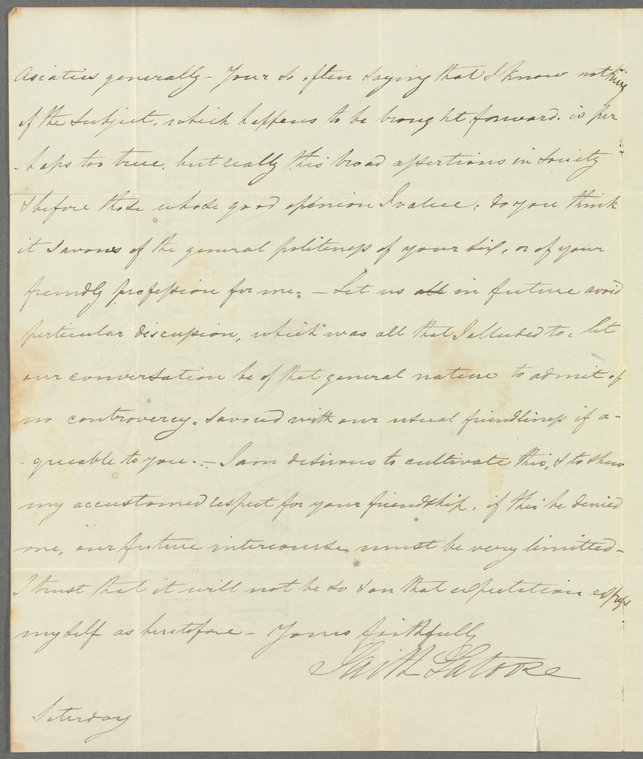 Asiatics generally - Your so often saying that I know nothing
of the subject, which happens to be brought forward. is per
-haps too true, but really this broad assertions in Society
& before those whose good opinion I value, do you think
it savors of the general politeness of your sex, or of your
friendly profession for me. - Let us all in future avoid
perticular discussion, which was all that I alluded to, let
our conversation be of that general nature to admit of
no controvercy. savored with our usual friendliness if a-
-greeable to you. - I am desirous to cultivate this, & to show
my accustomed respect for your friendship, if this be denied
me, our future intercourse must be very limitted -
I trust that it will not be so & on that expectation express
myself as heretofore - Yours faithfully
Saturday